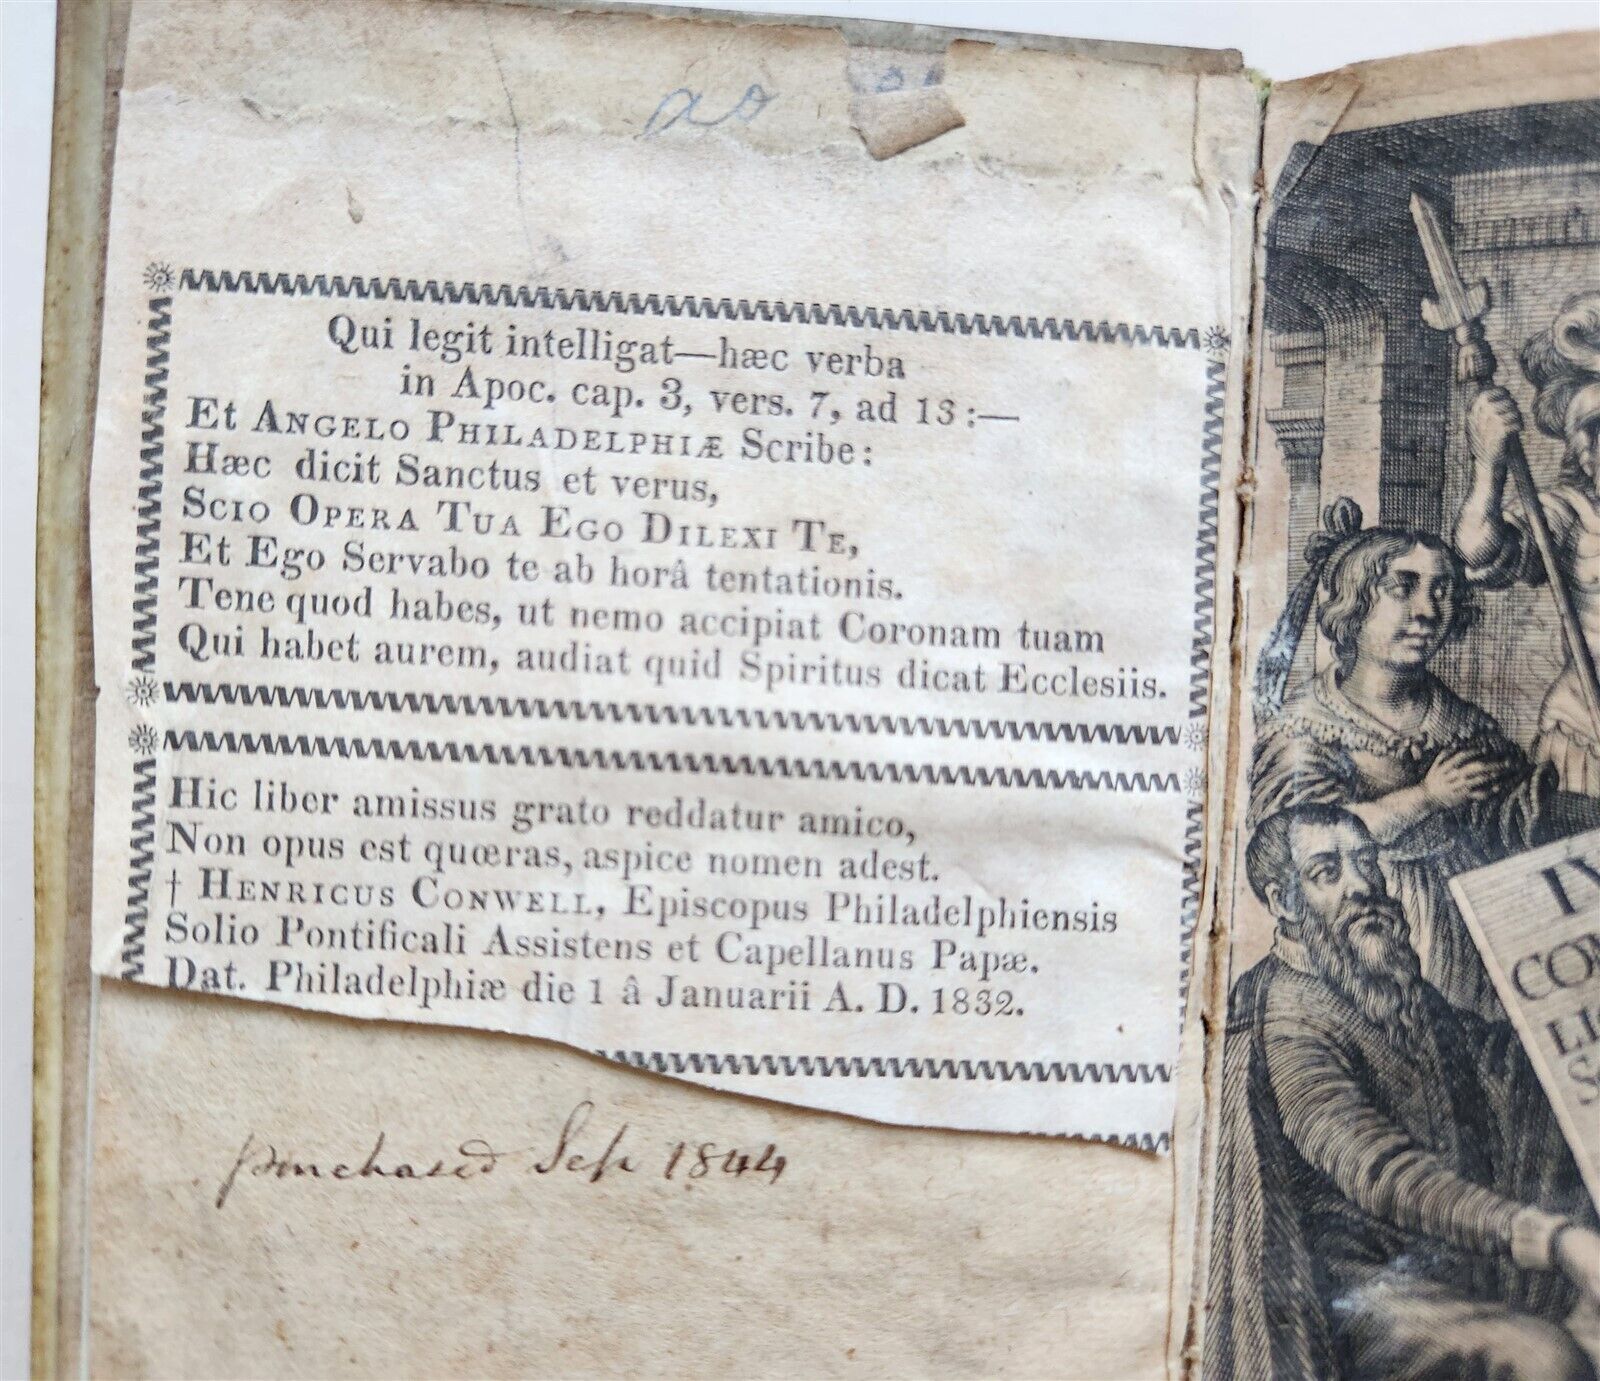 ao
Qui legit intelligat—hæc verba
in Apoc. cap. 3, vers. 7, ad 13:—
Et ANGELO PHILADELPHIÆ Scribe:
Hæc dicit Sanctus et verus,
SCIO OPERA TUA EGO DILEXI TE,
Et Ego Servabo te ab horâ tentationis.
Tene quod habes, ut nemo accipiat Coronam tuam
Qui habet aurem, audiat quid Spiritus dicat Ecclesiis.
Hic liber amissus grato reddatur amico,
Non opus est quœras, aspice nomen adest.
† HENRICUS CONWELL, Episcopus Philadelphiensis
Solio Pontificali Assistens et Capellanus Papæ.
Dat. Philadelphiæ die 1 â Januarii A. D. 1832.
purchased Sep 1844